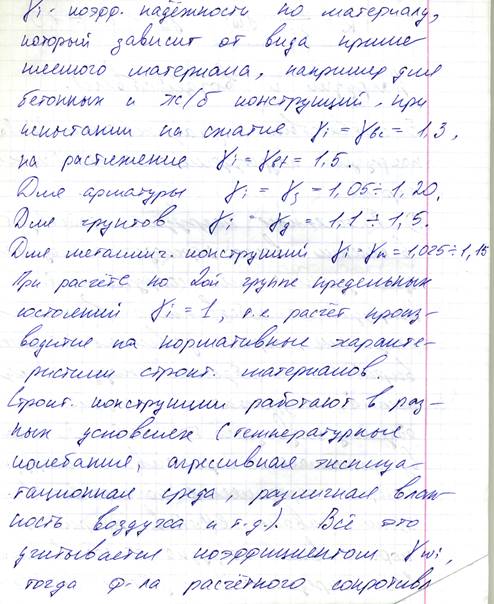 γi - коэфф. надёжности по материалу,
который зависит от вида приме
няемого материала, например для
бетонных и ж/б конструкций, при
испытании на сжатие γi = γbc = 1,3,
на растяжение γi = γbt = 1,5.
Для арматуры γi = γs = 1,05 ÷ 1,20.
Для грунтов γi = γg = 1,1 ÷ 1,5.
Для металлич. конструкций γi = γm = 1,025 ÷ 1,15
При расчёте по 2ой группе предельных
состояний γi = 1, т.е. расчёт произ-
водится на нормативные характе-
ристики строит. материалов.
Строит. конструкции работают в раз-
ных условиях (температурные
колебания, агрессивная эксплуа-
тационная среда, различная влаж-
ность воздуха и т.д.). Всё это
учитывается коэффициентом γwi,
тогда ф-ла расчётного сопротивл